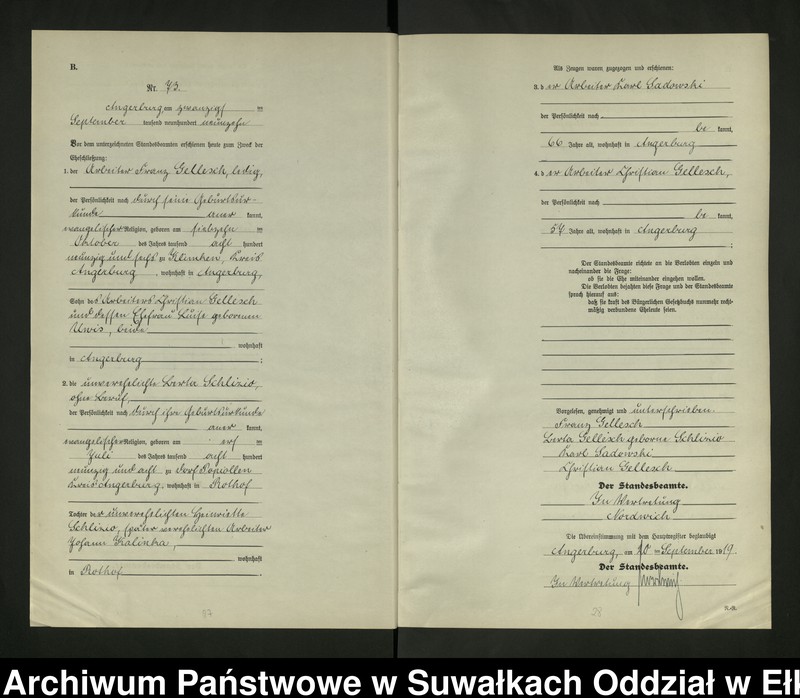 B.
Nr. 73.
Angerburg, am zwanzigsten
September tausend neunhundert neunzehn
Vor dem unterzeichneten Standesbeamten erschienen heute zum Zweck der
Eheschließung:
1. der Arbeiter Franz Gellesch, ledig,
der Persönlichkeit nach durch seine Geburtsur-
kunde aner kannt,
evangelischer Religion, geboren am siebzehn ten
Oktober des Jahres tausend acht hundert
neunzig und sechs zu Klimken, Kreis
Angerburg, wohnhaft in Angerburg,
Sohn des Arbeiters Christian Gellesch
und dessen Ehefrau Luise geborenen
Uwis, beide
wohnhaft
in Angerburg;
2. die unverehelichte Berta Schlizio,
ohne Beruf,
der Persönlichkeit nach durch ihre Geburtsurkunde
aner kannt,
evangelischer Religion, geboren am elf ten
Juli des Jahres tausend acht hundert
neunzig und acht zu Dorf Popiollen
Kreis Angerburg, wohnhaft in Rothof
Tochter der unverehelichten Henriette
Schlizio, später verehelichten Arbeiter
Johann Kalinka,
wohnhaft
in Rothof.
Als Zeugen waren zugezogen und erschienen:
3. der Arbeiter Karl Sadowski
der Persönlichkeit nach
be kannt,
66 Jahre alt, wohnhaft in Angerburg
4. der Arbeiter Christian Gellesch,
der Persönlichkeit nach
be kannt,
54 Jahre alt, wohnhaft in Angerburg
;
Der Standesbeamte richtete an die Verlobten einzeln und
nacheinander die Frage:
ob sie die Ehe miteinander eingehen wollen.
Die Verlobten bejahten diese Frage und der Standesbeamte
sprach hierauf aus:
daß sie kraft des Bürgerlichen Gesetzbuchs nunmehr recht-
mäßig verbundene Eheleute seien.
Vorgelesen, genehmigt und unterschrieben.
Franz Gellesch
Berta Gellesch geborne Schlizio
Karl Sadowski
Christian Gellesch
Der Standesbeamte.
In Vertretung
Nordwich
Die Übereinstimmung mit dem Hauptregister beglaubigt
Angerburg, am 20 ten September 1919.
Der Standesbeamte.
In Vertretung
28
Archiwum Państwowe w Suwałkach Oddział w Ełk